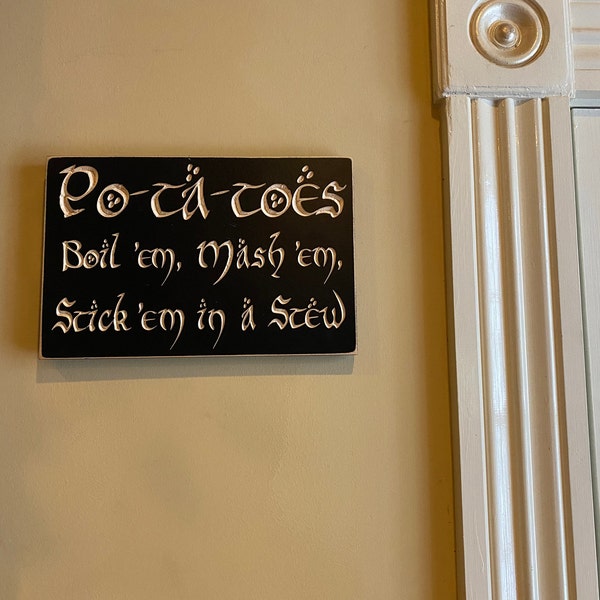 Po-tä-toës
Boil 'em, Mäsh 'em,
Stick 'em in ä Stëw